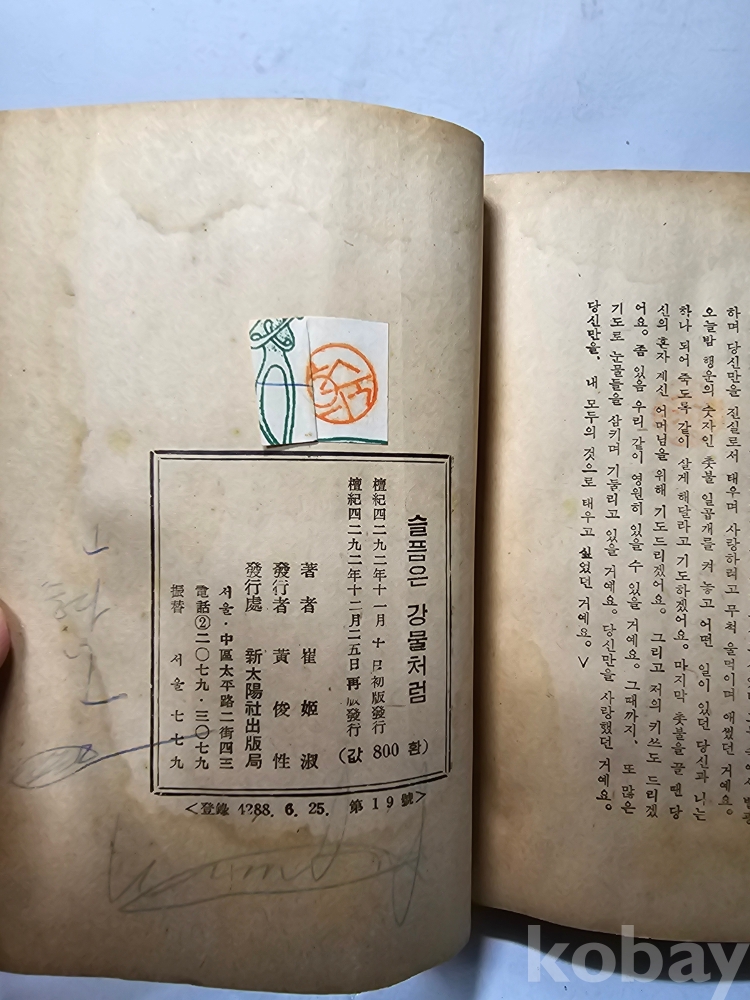 하며 당신만을 진실로서 태우며 사랑하려고 무척 울먹이며 애썼던 거예요.
오늘밤 행운의 숫자인 촛불 일곱개를 켜 놓고 어떤 일이 있던 당신과 나는
하나 되어 죽도록 같이 살게 해달라고 기도하겠어요. 마지막 촛불을 끌 땐 당
신의 혼자 계신 어머님을 위해 기도드리겠어요. 그리고 저의 키쓰도 드리겠
어요. 좀 있음 우리 같이 영원히 있을 수 있을 거예요. 그때까지, 또 많은
기도로 눈물들을 삼키며 기둘리고 있을 거예요. 당신만을 사랑했던 거예요.
당신만을, 내 모두의 것으로 태우고 싶었던 거예요.∨
슬픔은 강물처럼
檀紀四二九二年十一月十日初版發行
檀紀四二九二年十二月二五日再版發行
(값 800 환)
著者 崔姬淑
發行者 黃俊性
發行處 新太陽社出版局
서울·中區太平路二街四三
電話②二○七九·三○七九
振替 서울 七七九
<登錄 4288. 6. 25. 第19號>
kobay